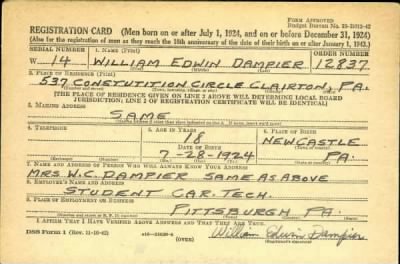 Form Approved
REGISTRATION CARD (Men born on or after July 1, 1924, and on or before December 31, 1924)
(Also for the registration of men as they reach the 18th anniversary of the date of their birth on or after January 1, 1943.)
SERIAL NUMBER 1. NAME (Print) ORDER NUMBER
W 14 WILLIAM EDWIN DAMPIER 12837
2. PLACE OF RESIDENCE (Print)
537 CONSTUTITION CIRCLE CLAIRTON, PA.
(THE PLACE OF RESIDENCE GIVEN ON LINE 2 ABOVE WILL DETERMINE LOCAL BOARD
JURISDICTION; LINE 2 OF REGISTRATION CERTIFICATE WILL BE IDENTICAL)
3. MAILING ADDRESS
SAME
4. TELEPHONE 5. AGE IN YEARS 6. PLACE OF BIRTH
18 NEWCASTLE
DATE OF BIRTH
7-28-1924 PA.
7. NAME AND ADDRESS OF PERSON WHO WILL ALWAYS KNOW YOUR ADDRESS
MRS W.C. DAMPIER SAME AS ABOVE
8. EMPLOYER'S NAME AND ADDRESS
STUDENT CAR. TECH.
9. PLACE OF EMPLOYMENT OR BUSINESS
PITTSBURGH PA.
I AFFIRM THAT I HAVE VERIFIED ABOVE ANSWERS AND THAT THEY ARE TRUE.
DSS Form 1 (OVER) William Edwin Dampier